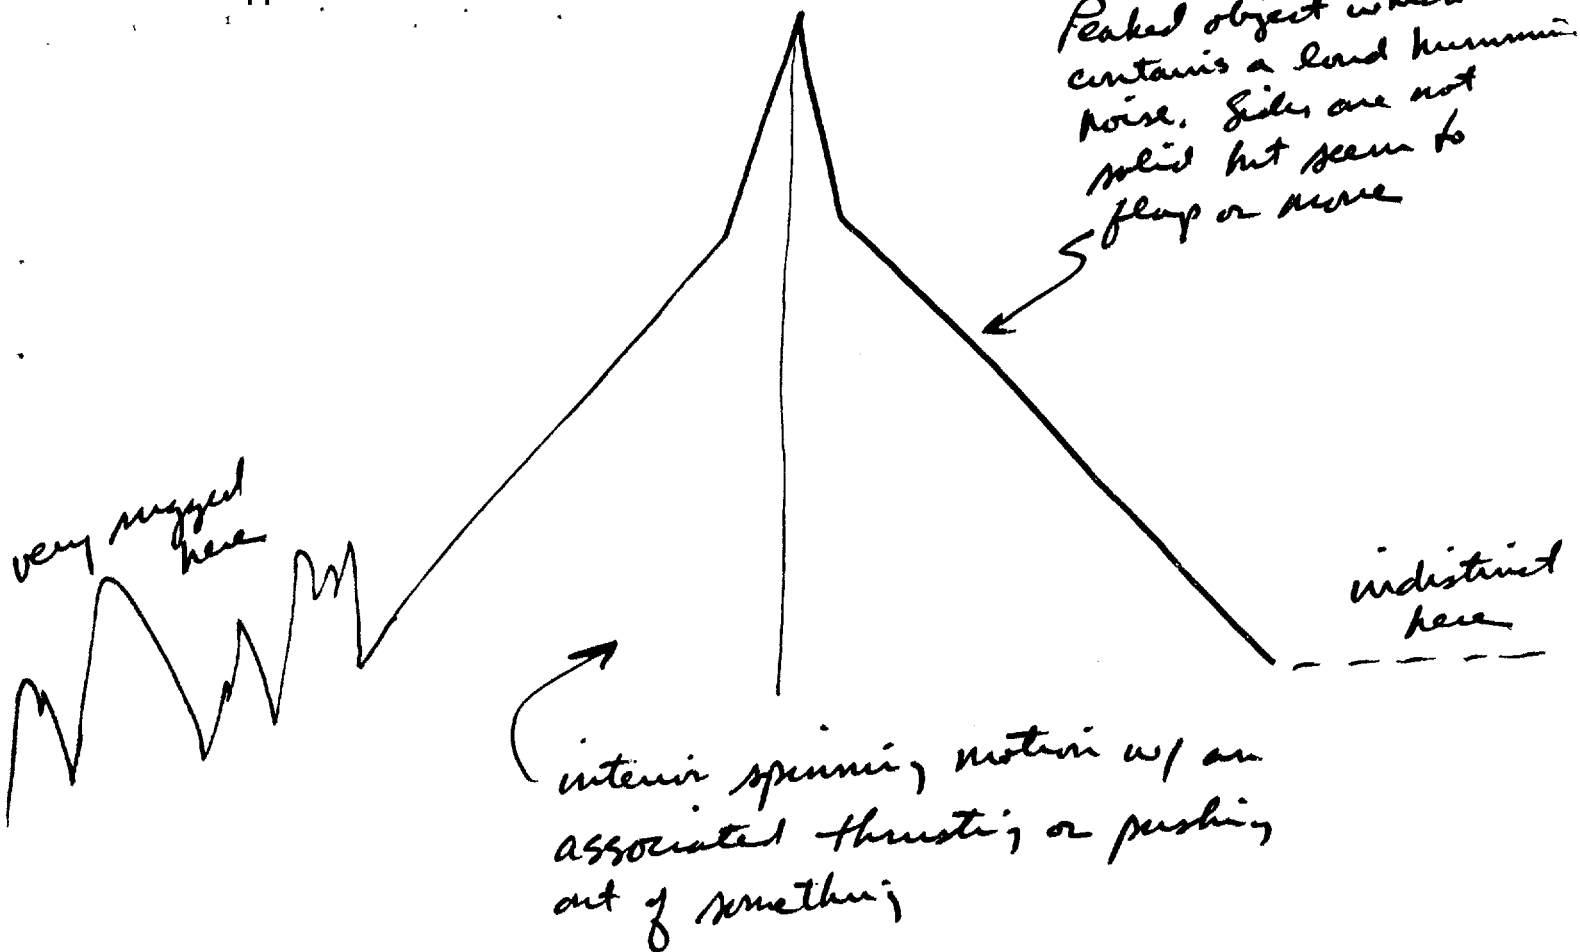 Peaked object which
contains a loud humming
noise. Sides are not
solid but seem to
flap or move
very rugged
here
indistinct
here
interior spinning motion w/ an
associated thrusting or pushing
out of something